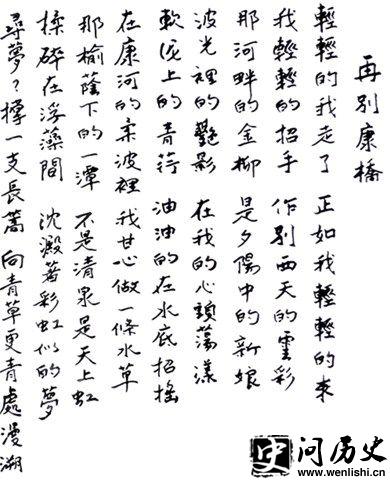 再別康橋
輕輕的我走了　正如我輕輕的來
我輕輕的招手　作別西天的雲彩
那河畔的金柳　是夕陽中的新娘
波光裡的艷影　在我的心頭蕩漾
軟泥上的青荇　油油的在水底招搖
在康河的柔波裡　我甘心做一條水草
那榆蔭下的一潭　不是清泉是天上虹
揉碎在浮藻間　沈澱著彩虹似的夢
尋夢？撐一支長篙　向青草更青處漫溯
史 问历史
www.wenlishi.cn